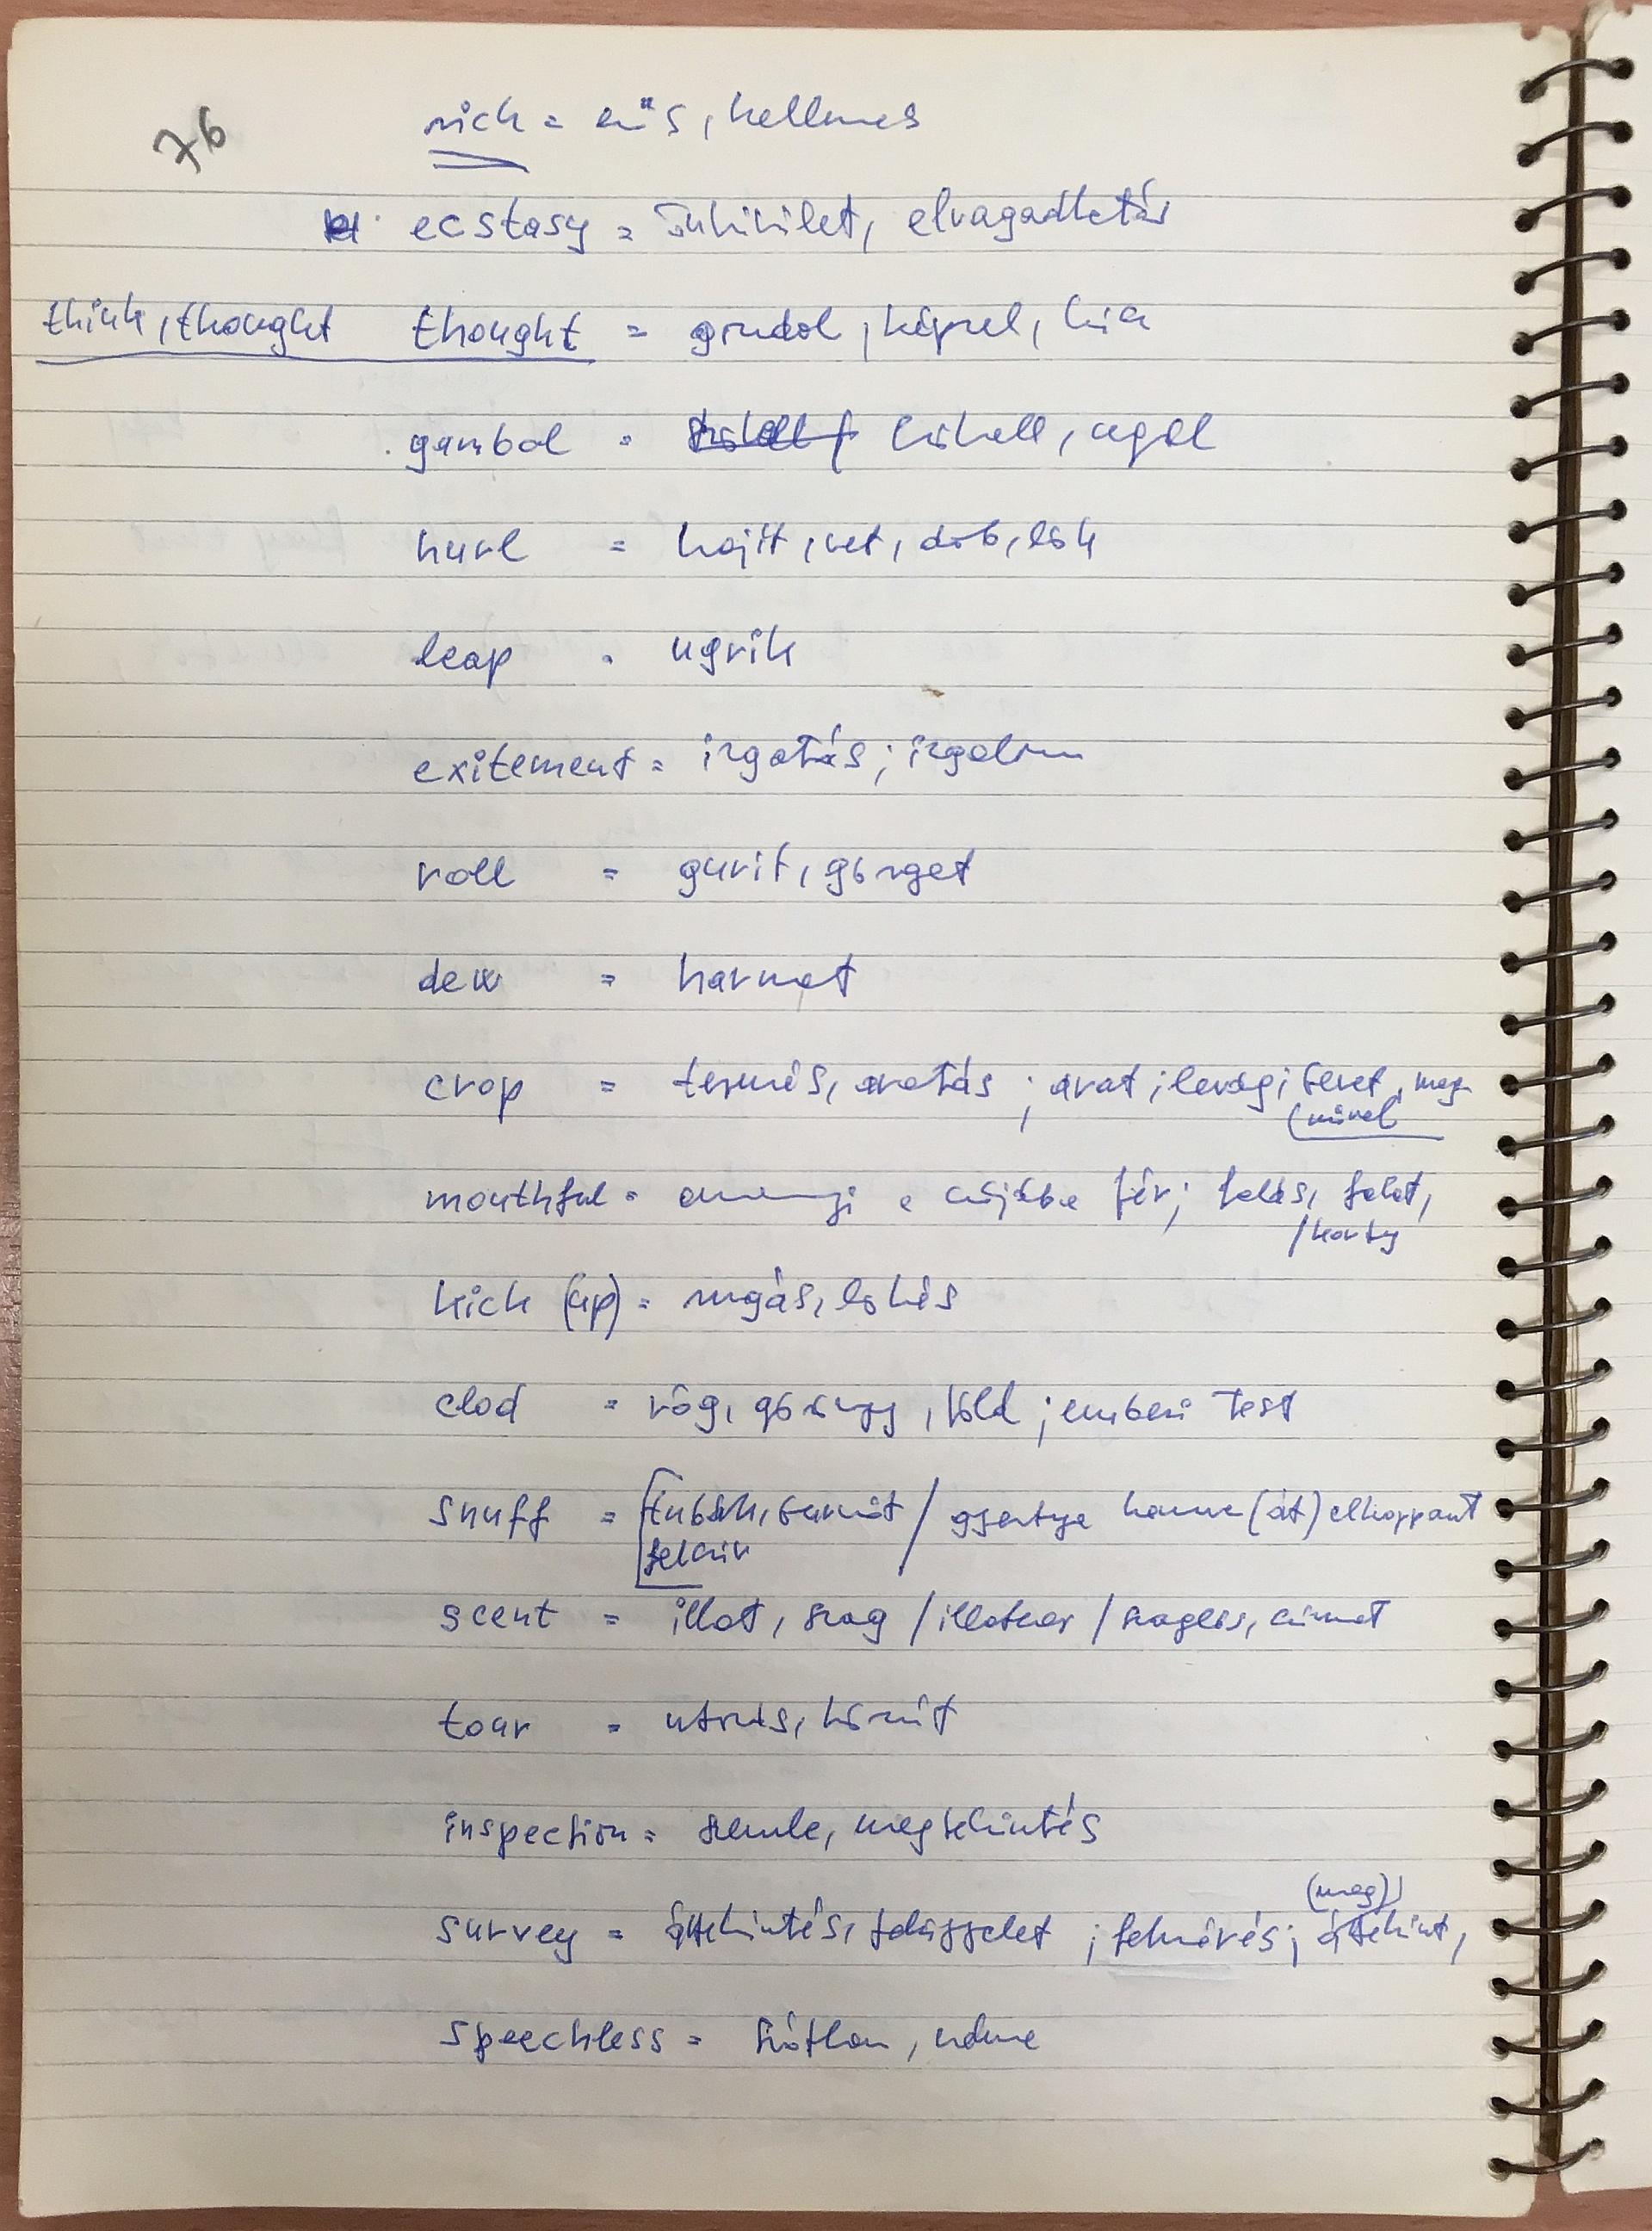 76
rich = erős, kellemes
ecstasy = önkivület, elragadtatás
think, thought thought = gondol, képzel, hisz
gambol = szökell, ugrál
hurl = hajít, vet, dob, lök
leap = ugrik
exitement = izgatás; izgalom
roll = gurit, görget
dew = harmat
crop = termés, aratás; arat; levág; teret, meg-
(művel
mouthful = amennyi a szájába fér; falás, falat,
/korty
kick (up) = rugás, lökés
clod = rög, göröngy, föld; emberi test
snuff = tubák, burnót / gyertya hamva (át) elkoppant
felszív
scent = illat, szag / illatszer / szaglás, szimat
tour = utazás, körút
inspection = szemle, megtekintés
(meg)
survey = áttekintés, felügyelet; felmérés; áttekint,
speechless = szótlan, néma